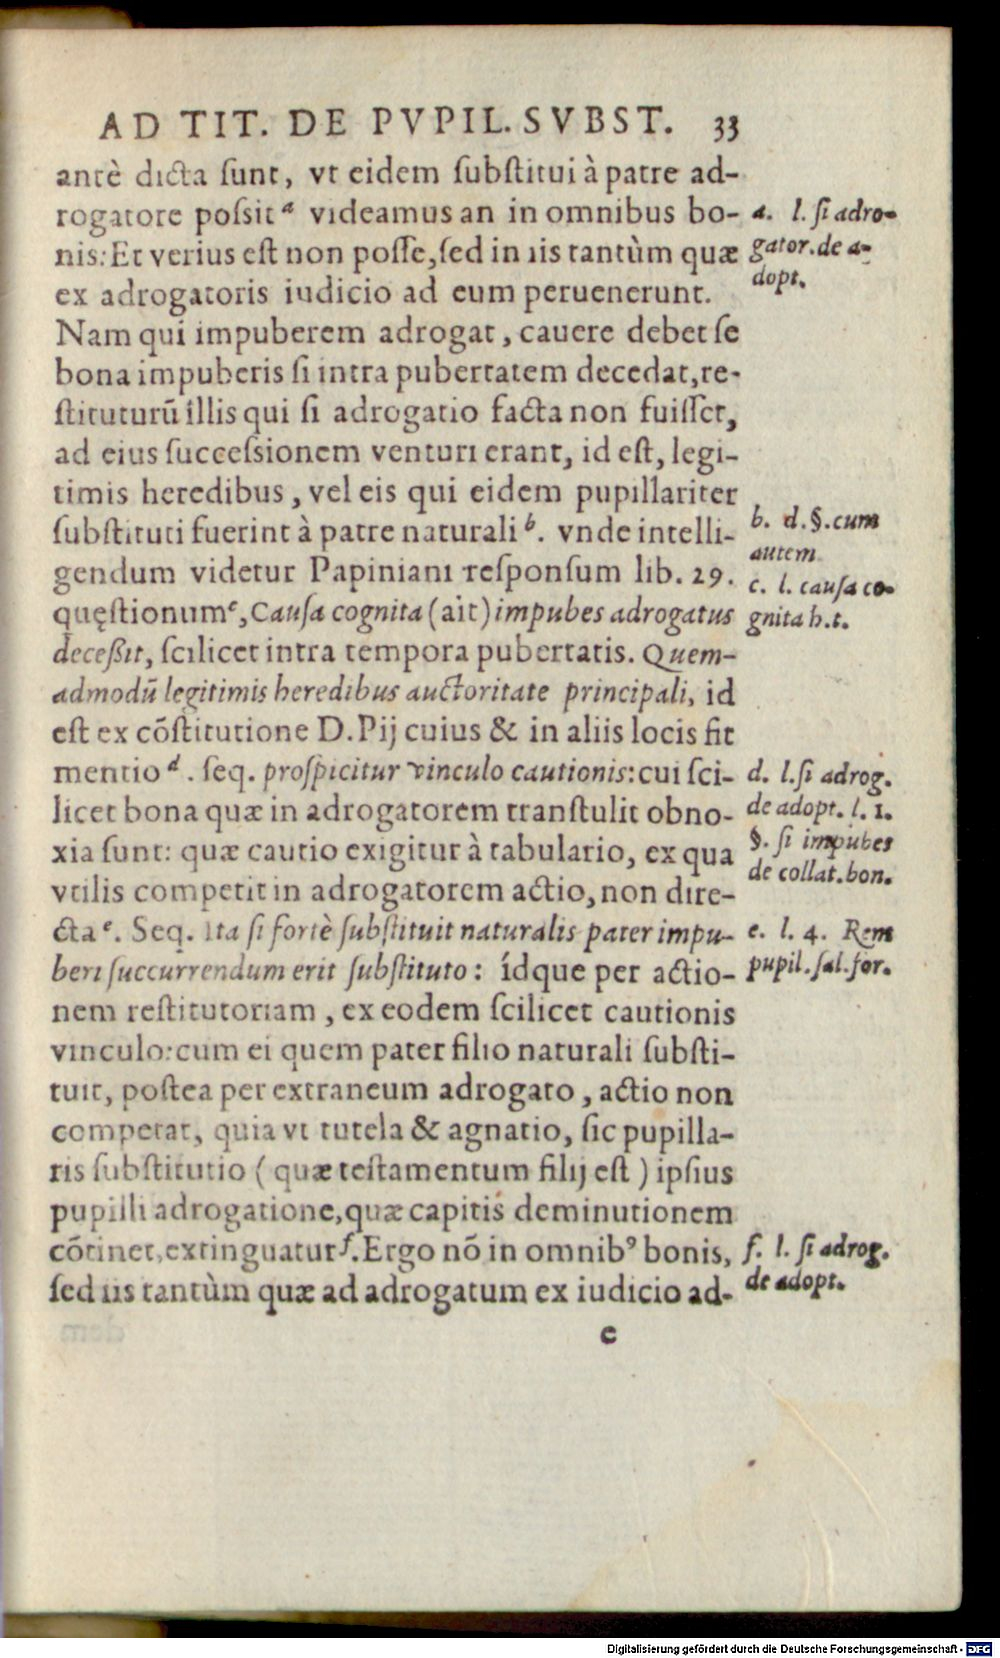 AD TIT. DE PVPIL. SVBST. 33
antè dicta sunt, vt eidem substitui à patre ad-
rogatore possit a videamus an in omnibus bo-
nis: Et verius est non posse, sed in iis tantùm quæ
ex adrogatoris iudicio ad eum peruenerunt.
Nam qui impuberem adrogat, cauere debet se
bona impuberis si intra pubertatem decedat, re-
stituturū illis qui si adrogatio facta non fuisset,
ad eius successionem venturi erant, id est, legi-
timis heredibus, vel eis qui eidem pupillariter
substituti fuerint à patre naturali b. vnde intelli-
gendum videtur Papiniani responsum lib. 29.
quęstionum c, Causa cognita (ait) impubes adrogatus
deceßit, scilicet intra tempora pubertatis. Quem-
admodū legitimis heredibus auctoritate principali, id
est ex cōstitutione D. Pij cuius & in aliis locis fit
mentio d. seq. prospicitur vinculo cautionis: cui sci-
licet bona quæ in adrogatorem transtulit obno-
xia sunt: quæ cautio exigitur à tabulario, ex qua
vtilis competit in adrogatorem actio, non dire-
cta e. Seq. Ita si fortè substituit naturalis pater impu-
beri succurrendum erit substituto: idque per actio-
nem restitutoriam, ex eodem scilicet cautionis
vinculo: cum ei quem pater filio naturali substi-
tuit, postea per extraneum adrogato, actio non
competat, quia vt tutela & agnatio, sic pupilla-
ris substitutio (quæ testamentum filij est) ipsius
pupilli adrogatione, quæ capitis deminutionem
cōtinet, extinguatur f. Ergo nō in omnibꝰ bonis,
sed iis tantùm quæ ad adrogatum ex iudicio ad-
e
a. l. si adro-
gator. de a-
dopt.
b. d. §. cum
autem
c. l. causa co-
gnita h. t.
d. l. si adrog.
de adopt. l. 1.
§. si impubes
de collat. bon.
e. l. 4. Rem
pupil. sal. for.
f. l. si adrog.
de adopt.
Digitalisierung gefördert durch die Deutsche Forschungsgemeinschaft - DFG